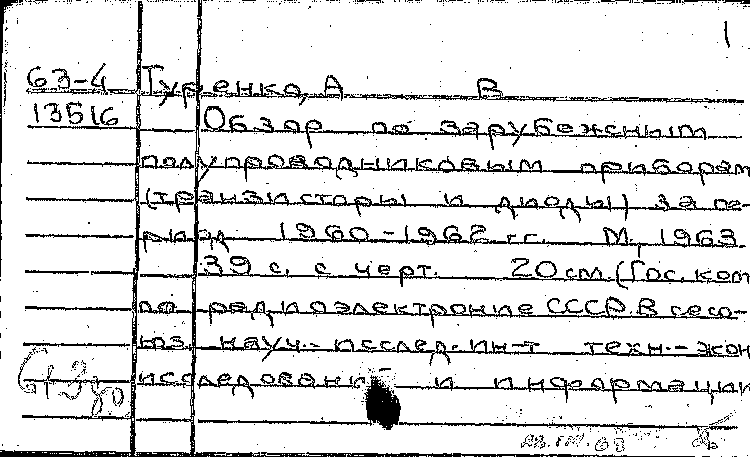 1
63-4 Гуренко, А В
13516 Обзор по зарубежным
полупроводниковым приборам
(транзисторы и диоды) за пе-
риод 1960-1962 гг. М., 1963
39 с. с черт. 20 см. (Гос. ком
по радиоэлектронике СССР. Всесо-
юз. науч.-исслед. ин-т техн.-экон
исследований и информации